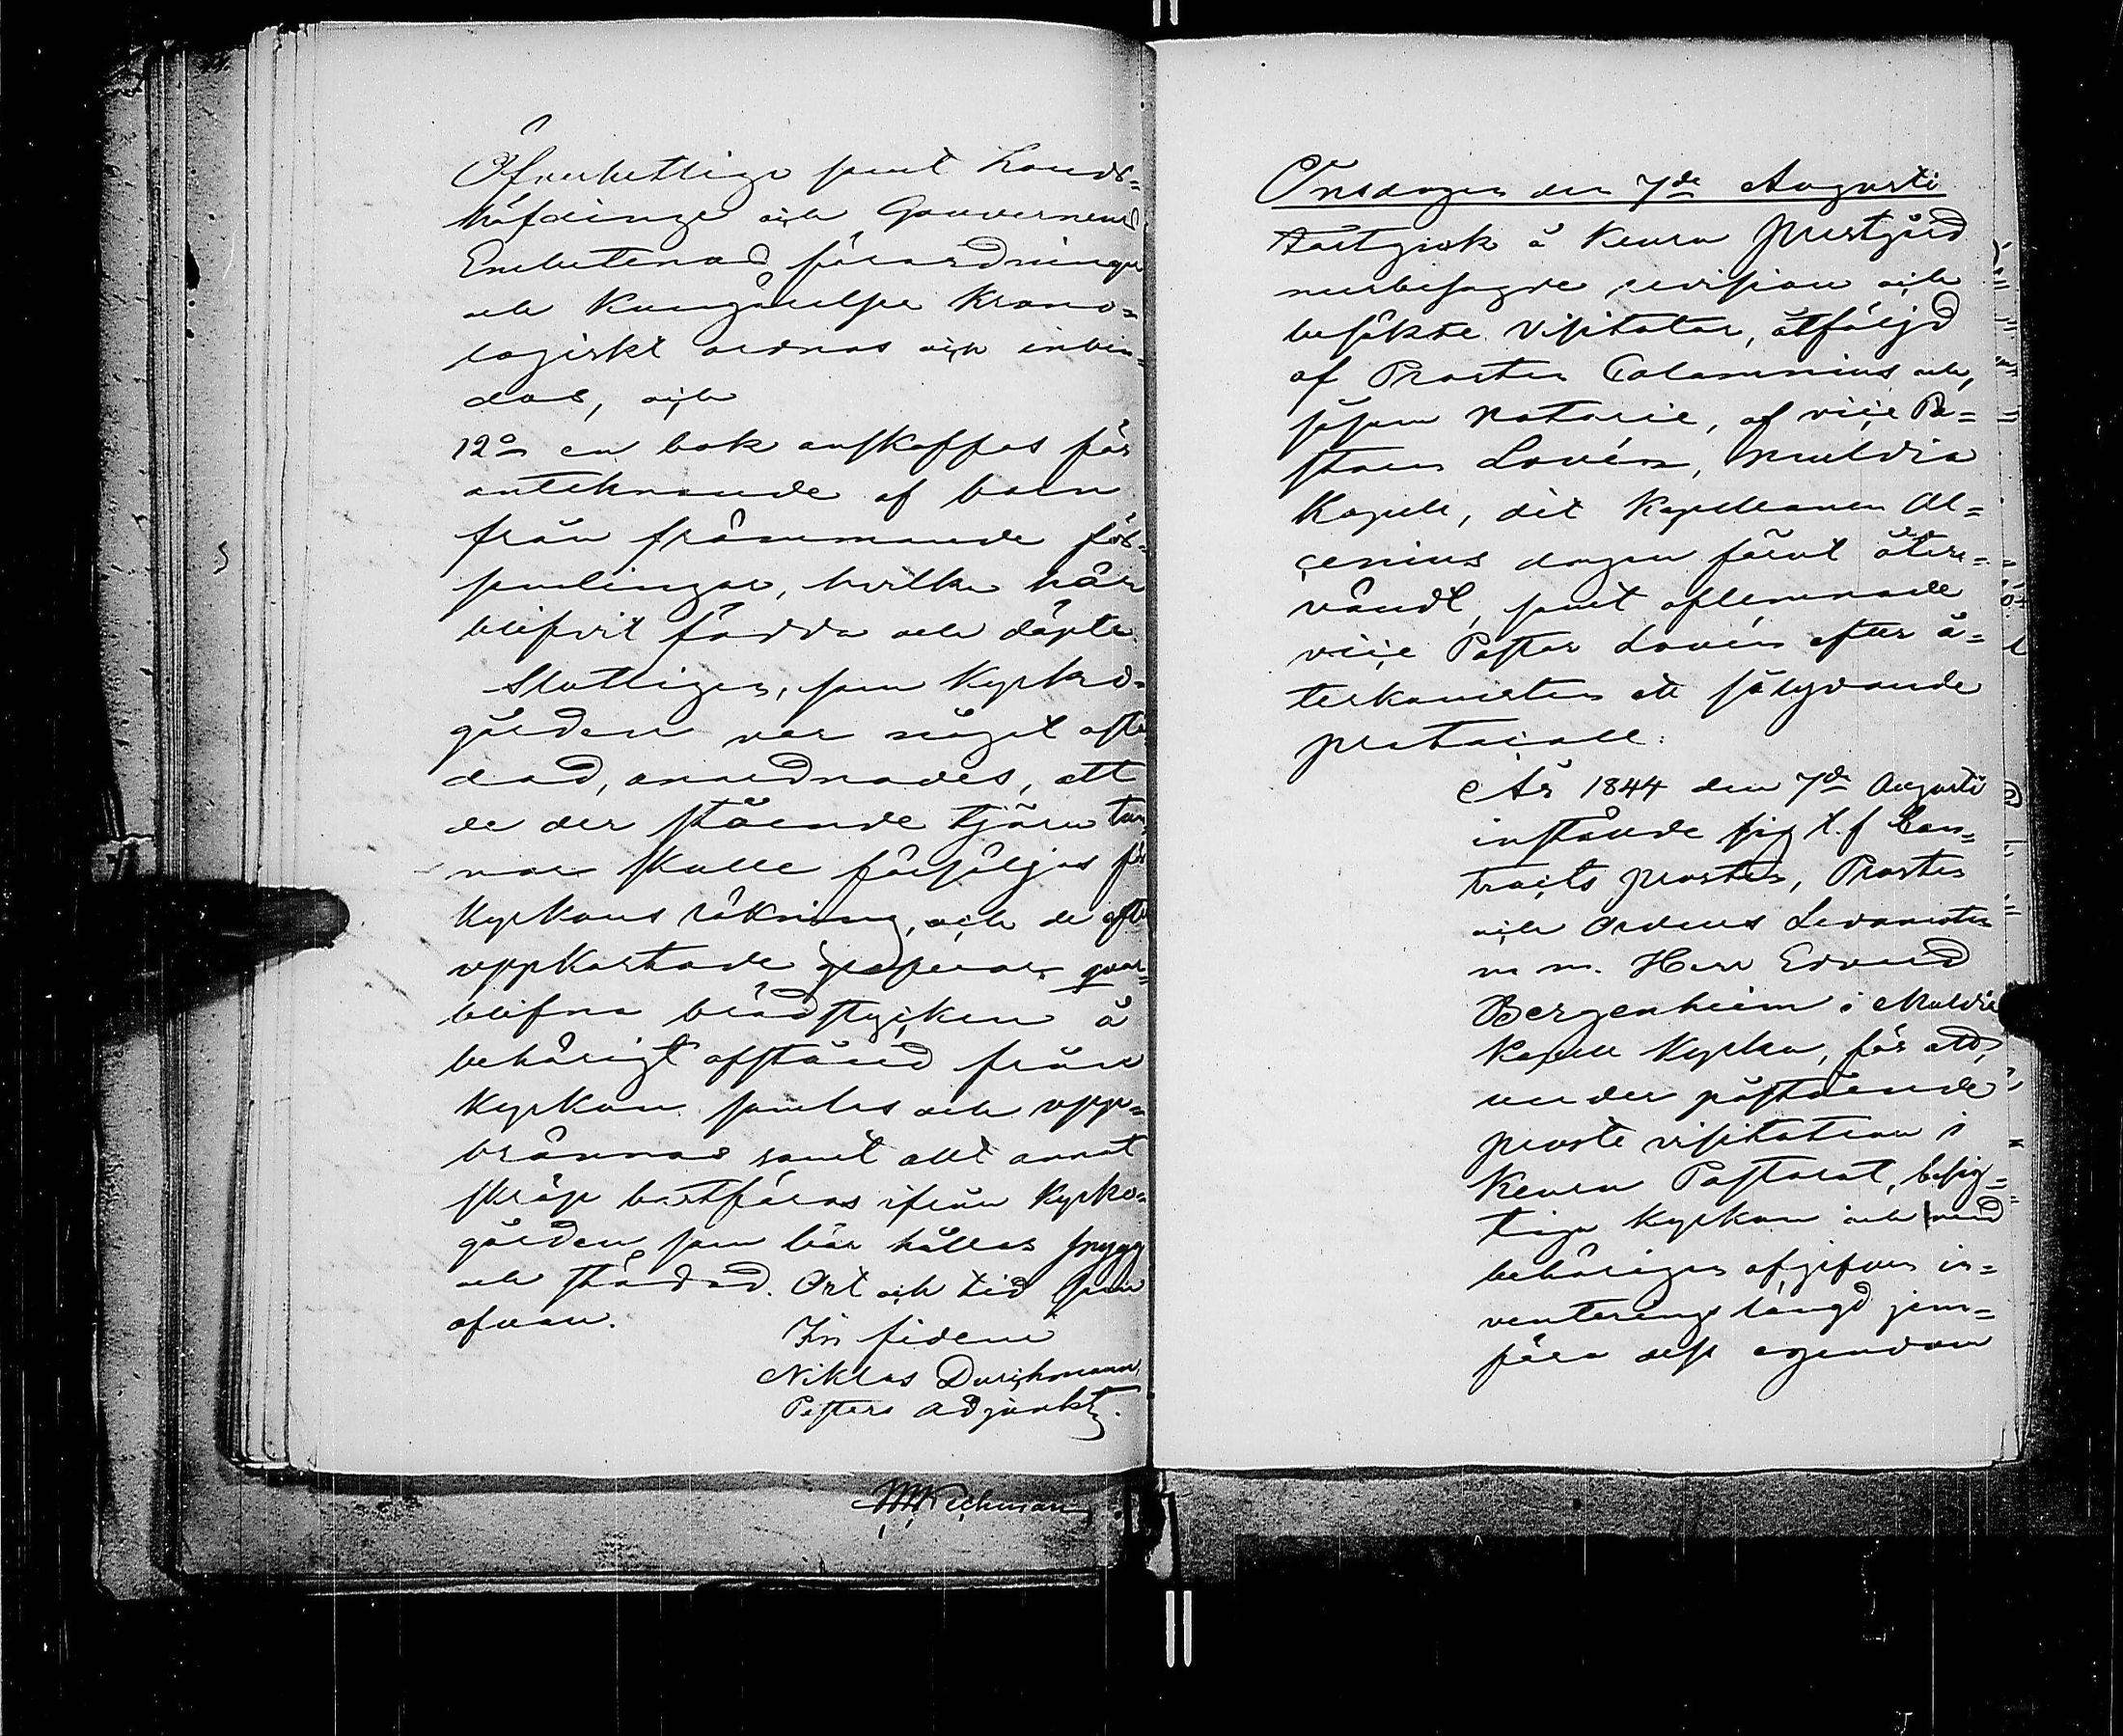 Öfverhettliga samt Lands-
höfdinge och Gouvernörs
Embetenas förordningar
och Kungörelser krono-
logiskt ordnas och inbin-
das, och
12o en bok anskaffas för
antecknande af barn
från främmande för-
samlingar, hvilka här
blifvit födda och döpte.
Slutligen, som Kyrko-
gården var något
anordnades, att
de der stående tjäru tun-
nor skulle försäljas för
Kyrkans räkning, och de efter
uppkastade qvar-
blifna brädstycken å
behörigt afstånd från
Kyrkan samlas och upp-
brännas samt allt annat
skräp bortföras ifrån Kyrko-
gården som bör hållas snygg
och städad. Ort och tid som
ofvan.
In fidem
Niklas Durchman
Pastors Adjunkt.
Onsdagen den 7de Augusti
företogs å Kemi Prestgård
nu besagde revision och
besökte Visitator, åtföljd
af Prosten Calamnius och,
såsom Notarie, af vice Pa-
storn Lovén, Muldia
Kapell, dit Kapellanen Al-
cenius dagen förut åter-
vändt, samt aflemnade
vice Pastor Lovén efter å-
terkomsten ett sålydande
protocoll:
År 1844 den 7de Augusti
inställde sig t. f. Con-
tracts prosten, Prosten
och Ordens Ledamoten
m. m. Herr Edvard
Bergenheim i Muldia
Kapell Kyrka, för att,
under påstående
proste visitation i
Kemi Pastorat, besig-
tiga Kyrkan och med
behörigen afgifven in-
venterings längd jem-
föra dess egendom